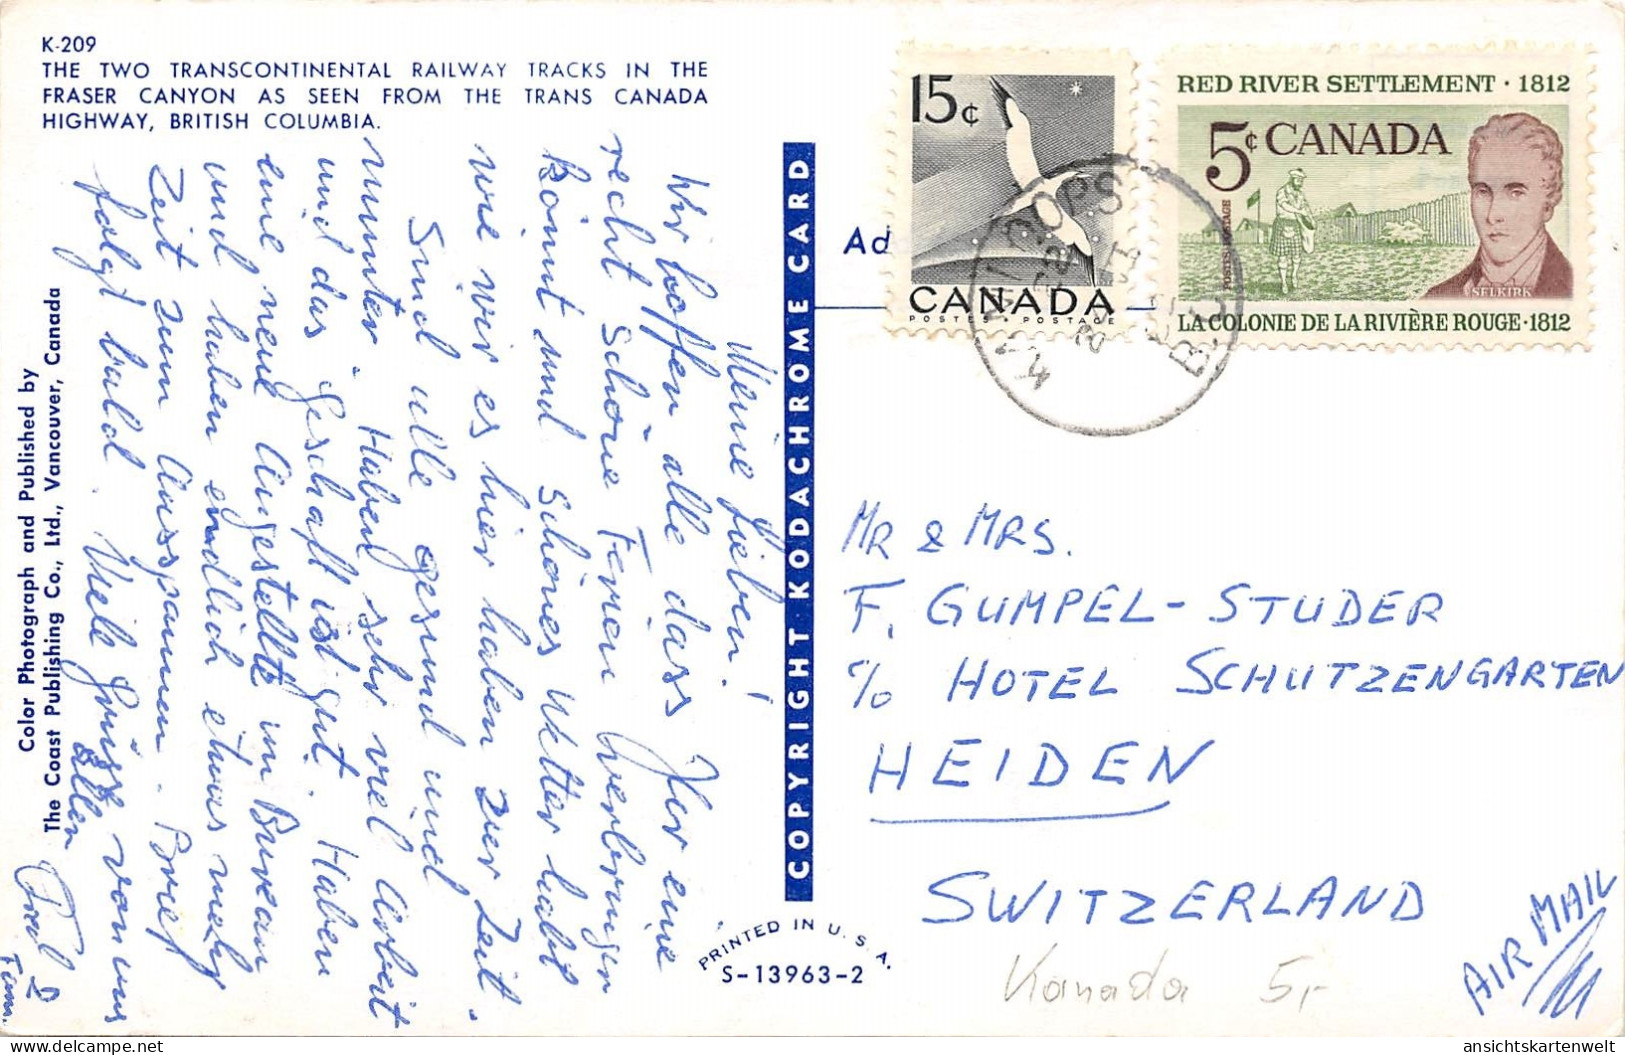 K-209
THE TWO TRANSCONTINENTAL RAILWAY TRACKS IN THE
FRASER CANYON AS SEEN FROM THE TRANS CANADA
HIGHWAY, BRITISH COLUMBIA.
Meine Lieben!
Wir hoffen alle dass Ihr eine
recht schöne Ferien verbringen
könnt und schönes Wetter habt
wie wir es hier haben zur Zeit.
Sind alle gesund und
munter. Haben sehr viel Arbeit
und das Geschäft ist gut. Haben
eine neue Angestellte im Bureau
und haben endlich etwas mehr
Zeit zum Ausspannen. Brief
folgt bald. Viele Grüsse von uns
allen Paul &
Fam.
Color Photograph and Published by
The Coast Publishing Co., Ltd., Vancouver, Canada
COPYRIGHT KODACHROME CARD
PRINTED IN U.S.A.
S-13963-2
Ad
15¢
CANADA
POSTES · POSTAGE
RED RIVER SETTLEMENT · 1812
5¢ CANADA
POSTES POSTAGE
SELKIRK
LA COLONIE DE LA RIVIÈRE ROUGE · 1812
KAMLOOPS
B.C.
MR & MRS.
F. GUMPEL-STUDER
c/o HOTEL SCHUTZENGARTEN
HEIDEN
SWITZERLAND
AIR MAIL
Kanada 5,-
ansichtskartenwelt